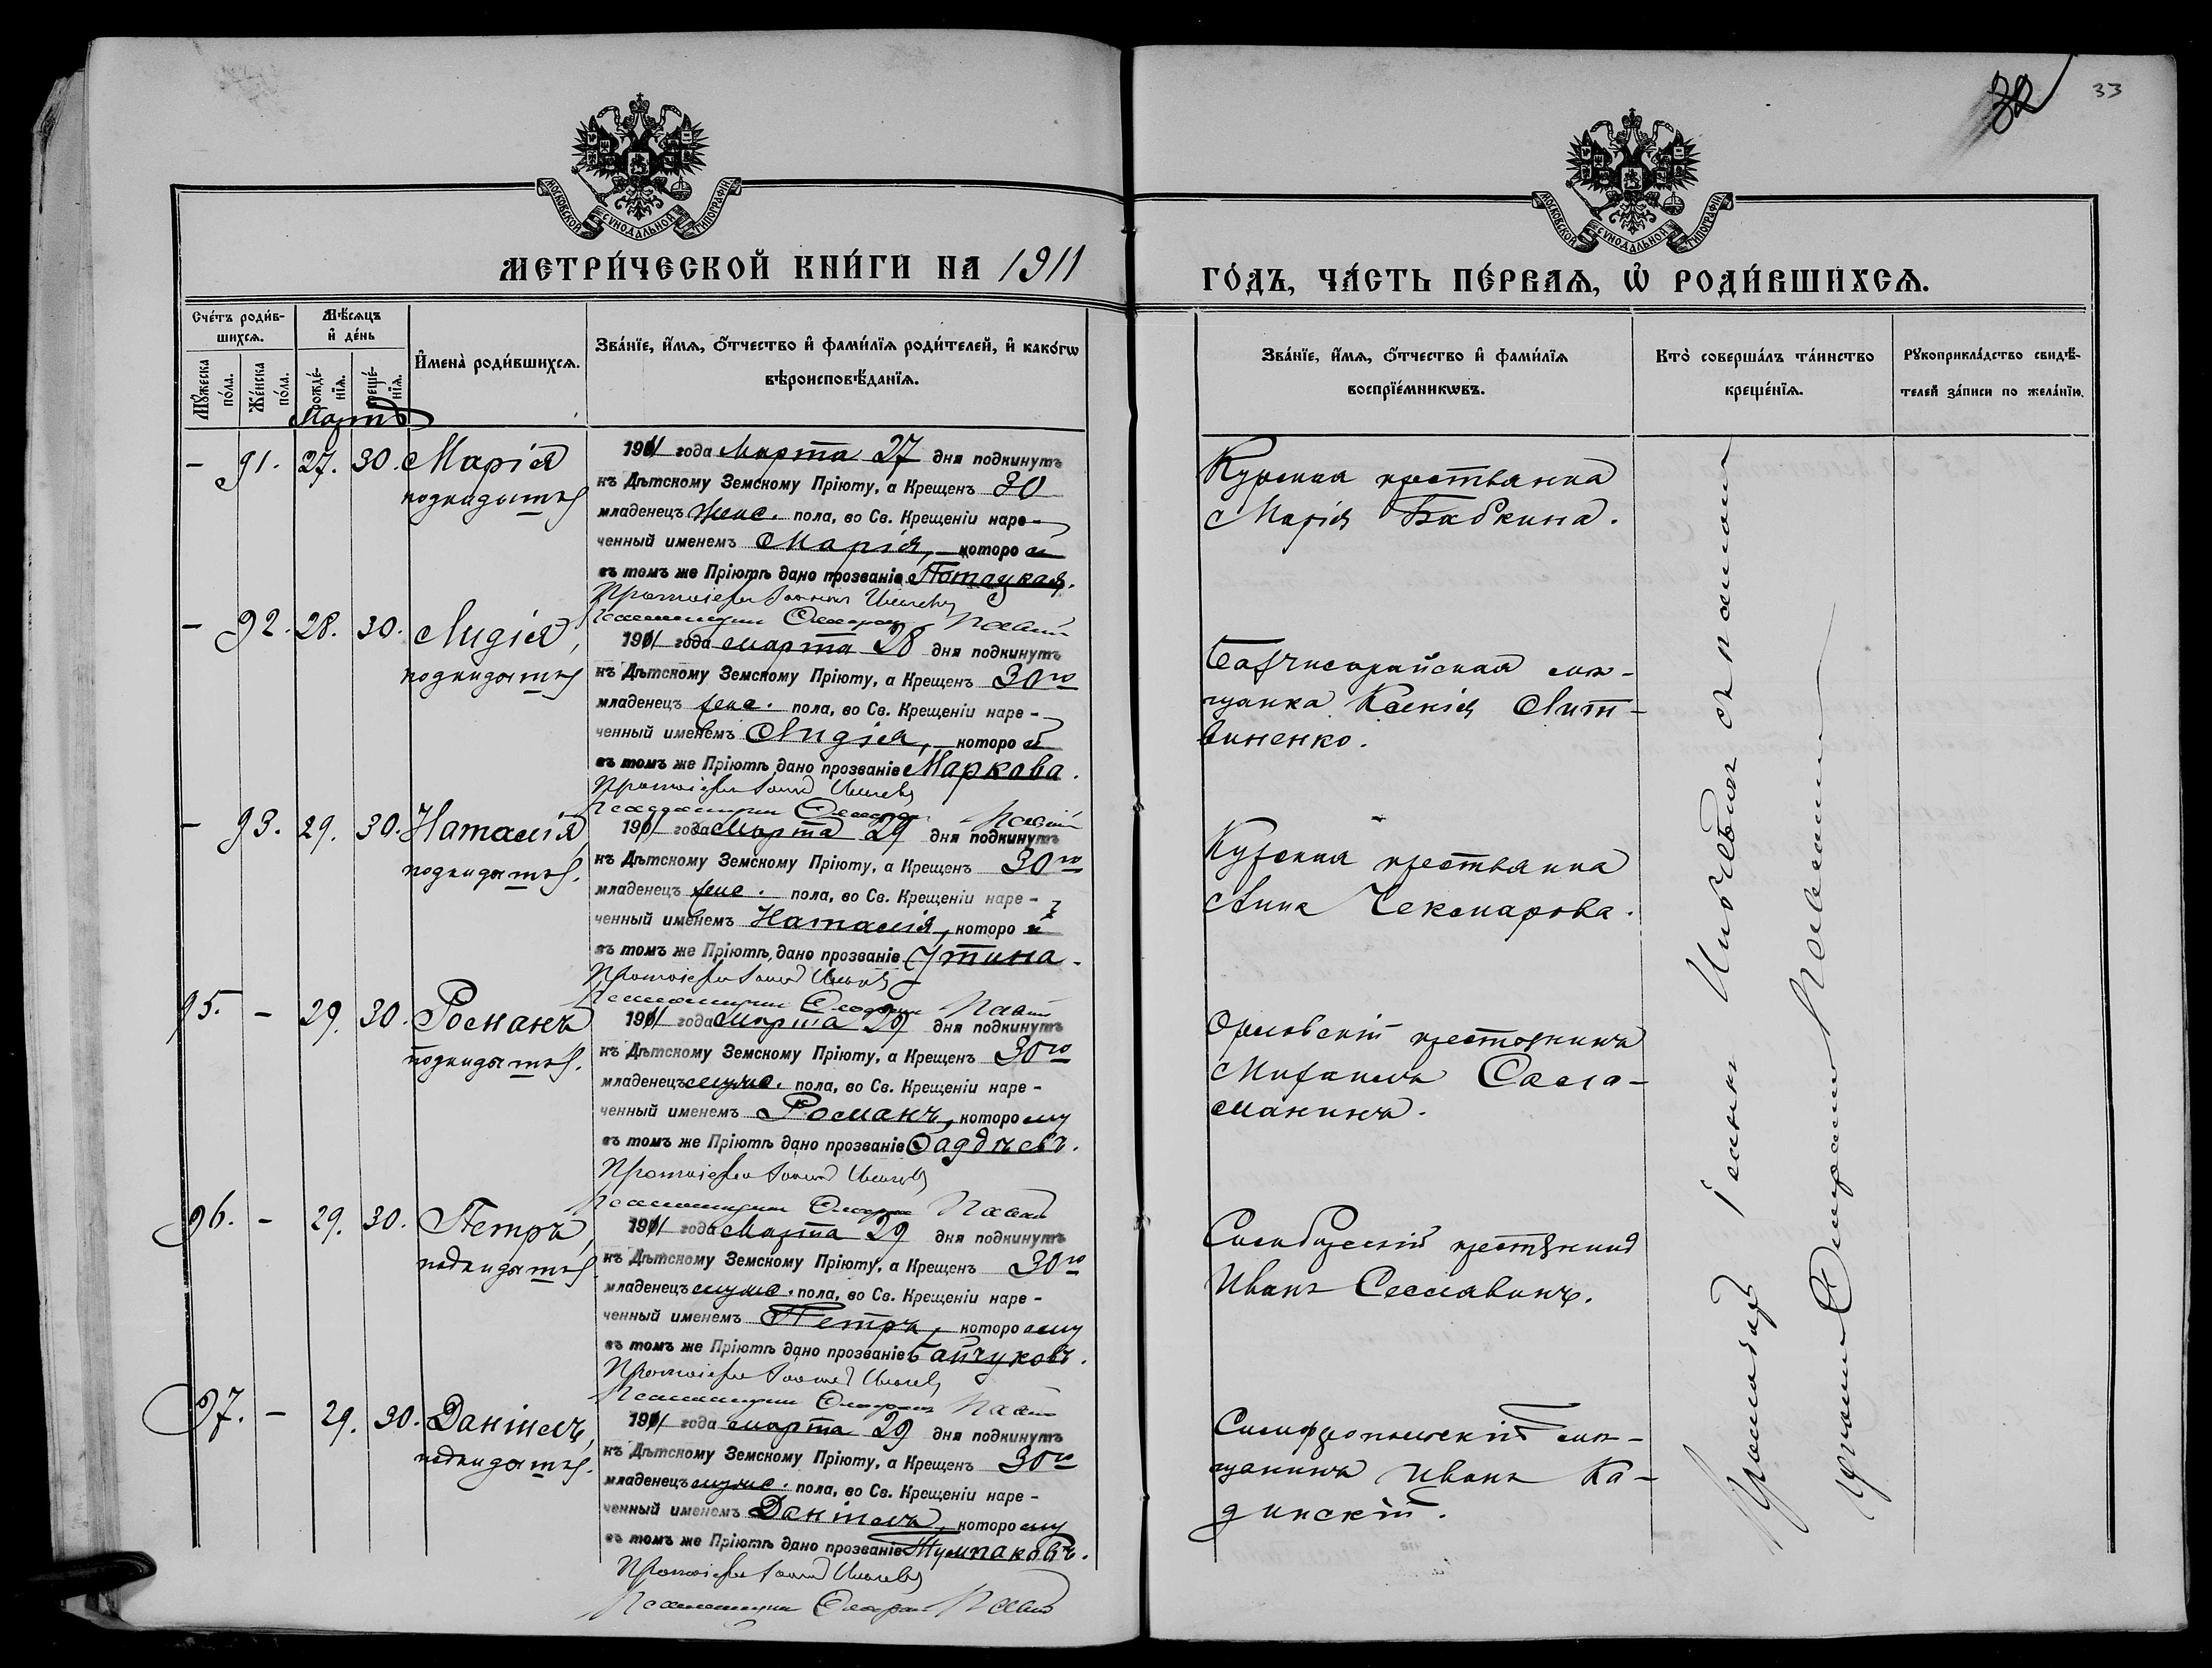 32
33
МОСКОВСКОЙ СУНОДАЛЬНОЙ ТИПОГРАФІИ
МОСКОВСКОЙ СУНОДАЛЬНОЙ ТИПОГРАФІИ
МЕТРИ́ЧЕСКОЙ КНИ́ГИ НА 1911
ГО́ДЪ, ЧА́СТЬ ПЕ́РВАѦ, Ѡ҆ РОДИ́ВШИХСѦ.
Сче́тъ роди́в-
шихсѧ.
Мꙋ́жеска
по́ла.
Же́нска
по́ла.
Мѣ́сѧцъ
и҆ де́нь
рожде́-
нїѧ.
креще́-
нїѧ.
Мартъ
И҆мена̀ роди́вшихсѧ.
Зва́нїе, и҆́мѧ, ѻ҆́тчество и҆ фами́лїѧ роди́телей, и҆ како́гѡ
вѣроисповѣ́данїѧ.
Зва́нїе, и҆́мѧ, ѻ҆́тчество и҆ фами́лїѧ
воспрїе́мникѡвъ.
Кто̀ соверша́лъ та́инство
креще́нїѧ.
Рꙋкоприкла́дство свидѣ́-
телей за́писи по жела́нїю.
– 91. 27. 30. Марія
подкидышъ
1911 года Марта 27 дня подкинутъ
къ Дѣтскому Земскому Пріюту, а Крещенъ 30
младенецъ женс. пола, во Св. Крещеніи наре-
ченный именемъ Марія, которой
въ томъ же Пріютѣ дано прозваніе
Протоіерей Іоаннъ
Курская крестьянка
Марія Бабкина.
– 92. 28. 30. Лидія,
подкидышъ
1911 года марта 28 дня подкинутъ
къ Дѣтскому Земскому Пріюту, а Крещенъ 30го
младенецъ женс. пола, во Св. Крещеніи наре-
ченный именемъ Лидія, которой
въ томъ же Пріютѣ дано прозваніе Маркова.
Протоіерей Іоаннъ
Бахчисарайская мѣ-
щанка Ксенія Лит-
виненко.
– 93. 29. 30. Наталія,
подкидышъ.
1911 года Марта 29 дня подкинутъ
къ Дѣтскому Земскому Пріюту, а Крещенъ 30го
младенецъ женс. пола, во Св. Крещеніи наре-
ченный именемъ Наталія, которой
въ томъ же Пріютѣ дано прозваніе Утина.
Протоіерей Іоаннъ
Курская крестьянка
Анна Чекмарова.
95. – 29. 30. Романъ
подкидышъ.
1911 года Марта 29 дня подкинутъ
къ Дѣтскому Земскому Пріюту, а Крещенъ 30го
младенецъ муже. пола, во Св. Крещеніи наре-
ченный именемъ Романъ, которому
въ томъ же Пріютѣ дано прозваніе
Протоіерей Іоаннъ
Орловскій крестьянинъ
Михаилъ
96. – 29. 30. Петръ,
подкидышъ.
1911 года Марта 29 дня подкинутъ
къ Дѣтскому Земскому Пріюту, а Крещенъ 30го
младенецъ муже. пола, во Св. Крещеніи наре-
ченный именемъ Петръ, которому
въ томъ же Пріютѣ дано прозваніе Байчуковъ.
Протоіерей Іоаннъ
Симбирскій крестьянинъ
Иванъ Сеславинъ.
97. – 29. 30. Даніилъ,
подкидышъ.
1911 года марта 29 дня подкинутъ
къ Дѣтскому Земскому Пріюту, а Крещенъ 30го
младенецъ муже. пола, во Св. Крещеніи наре-
ченный именемъ Даніилъ, которому
въ томъ же Пріютѣ дано прозваніе Тумпаковъ.
Протоіерей Іоаннъ
Симферопольскій мѣ-
щанинъ Иванъ Ка-
динскій.
Іоаннъ съ псаломщ